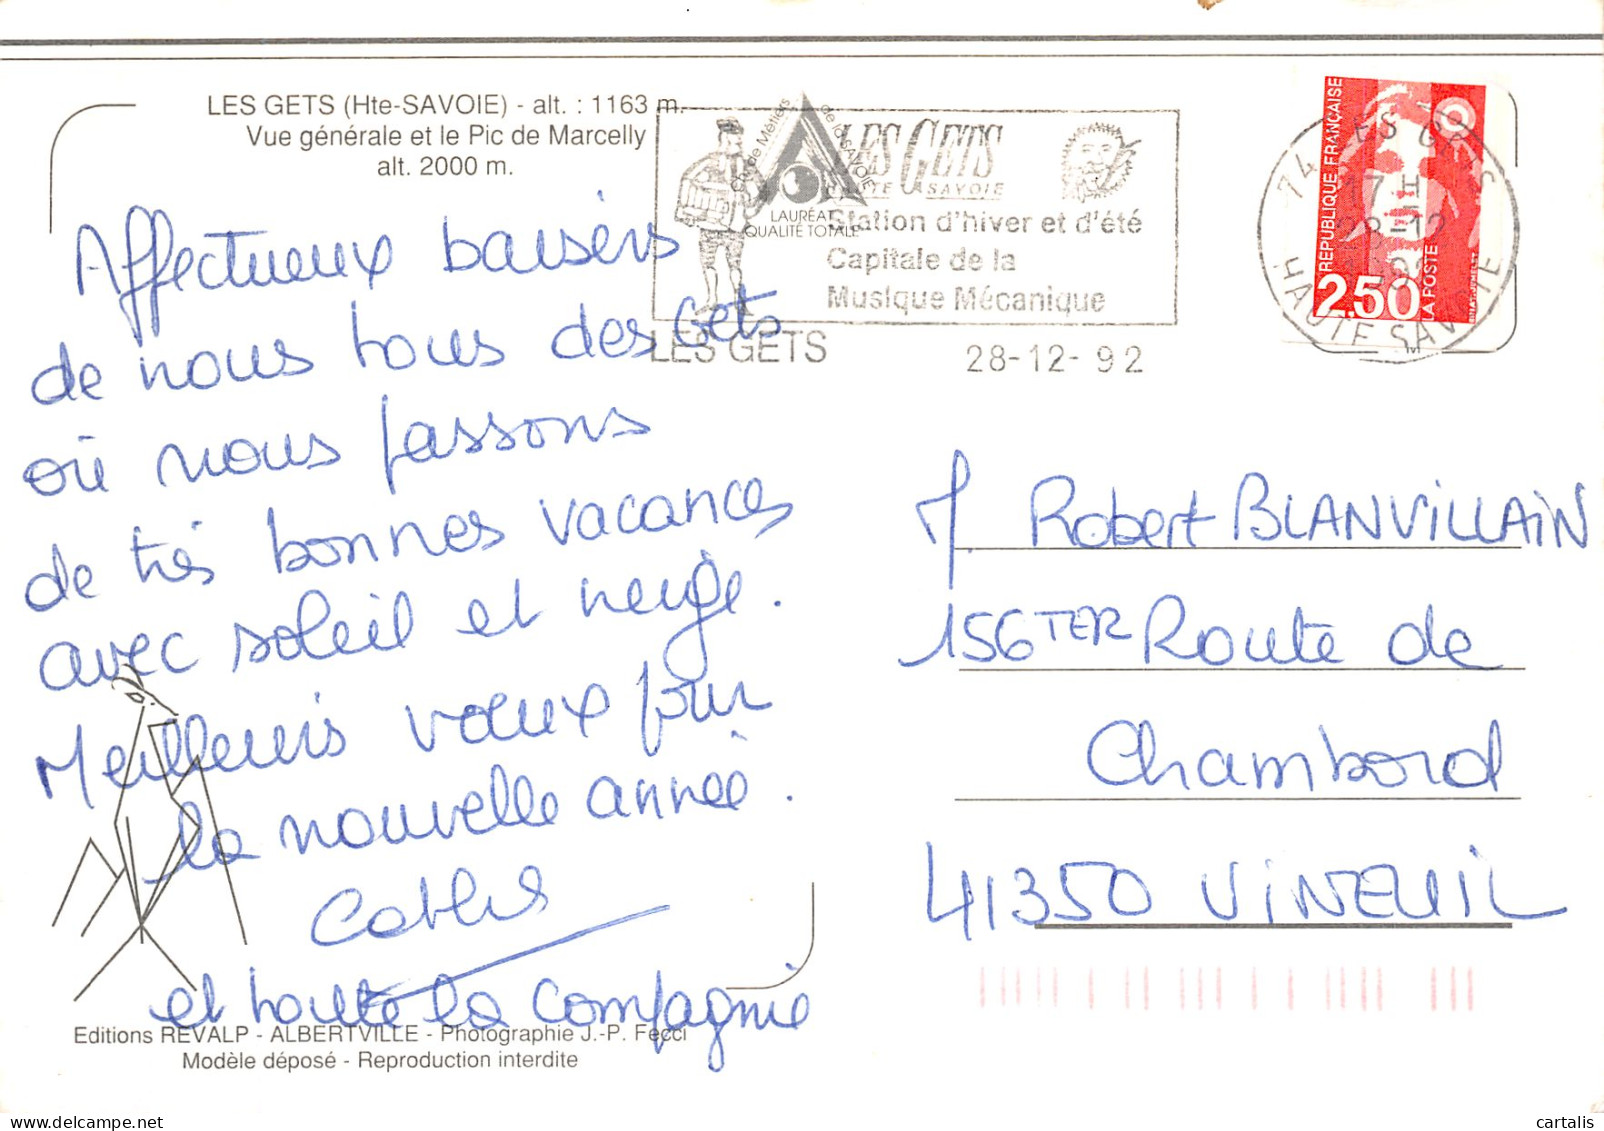 LES GETS (Hte-SAVOIE) - alt. : 1163 m.
Vue générale et le Pic de Marcelly
alt. 2000 m.
de Métiers de la SAVOIE
LAURÉAT
QUALITÉ TOTALE
LES GETS
HAUTE SAVOIE
Station d'hiver et d'été
Capitale de la
Musique Mécanique
LES GETS 28-12-92
74 LES GETS
17 H
28-12
HAUTE SAVOIE
REPUBLIQUE FRANÇAISE
2,50
LA POSTE
Affectueux baisers
de nous tous des Gets
où nous passons
de très bonnes vacances
avec soleil et neige.
Meilleurs vœux pour
la nouvelle année.
et toute la compagnie
M. Robert BLANVILLAIN
156 TER Route de
Chambord
41350 VINEUIL
Editions REVALP - ALBERTVILLE - Photographie J.-P. Fecci
Modèle déposé - Reproduction interdite
cartalis